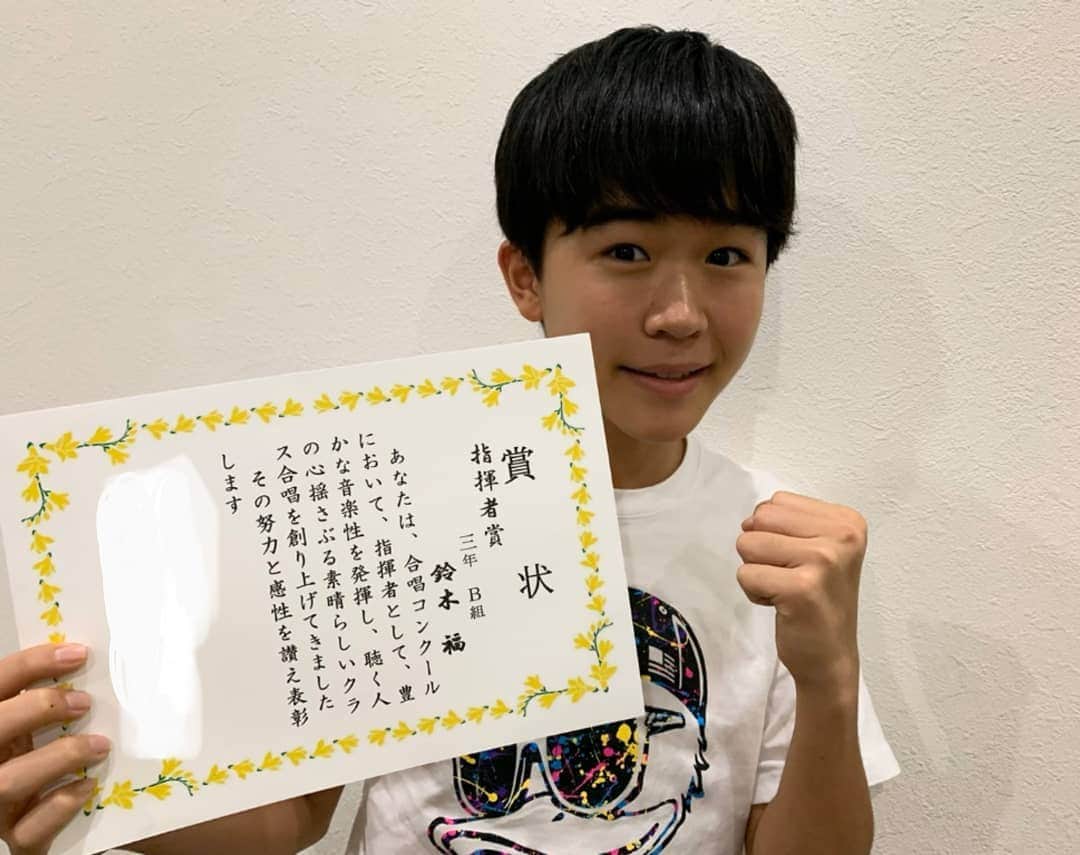 賞状
指揮者賞
三年 B組
鈴木 福
あなたは、合唱コンクール
において、指揮者として、豊
かな音楽性を発揮し、聴く人
の心揺さぶる素晴らしいクラ
ス合唱を創り上げてきました
その努力と感性を讃え表彰
します